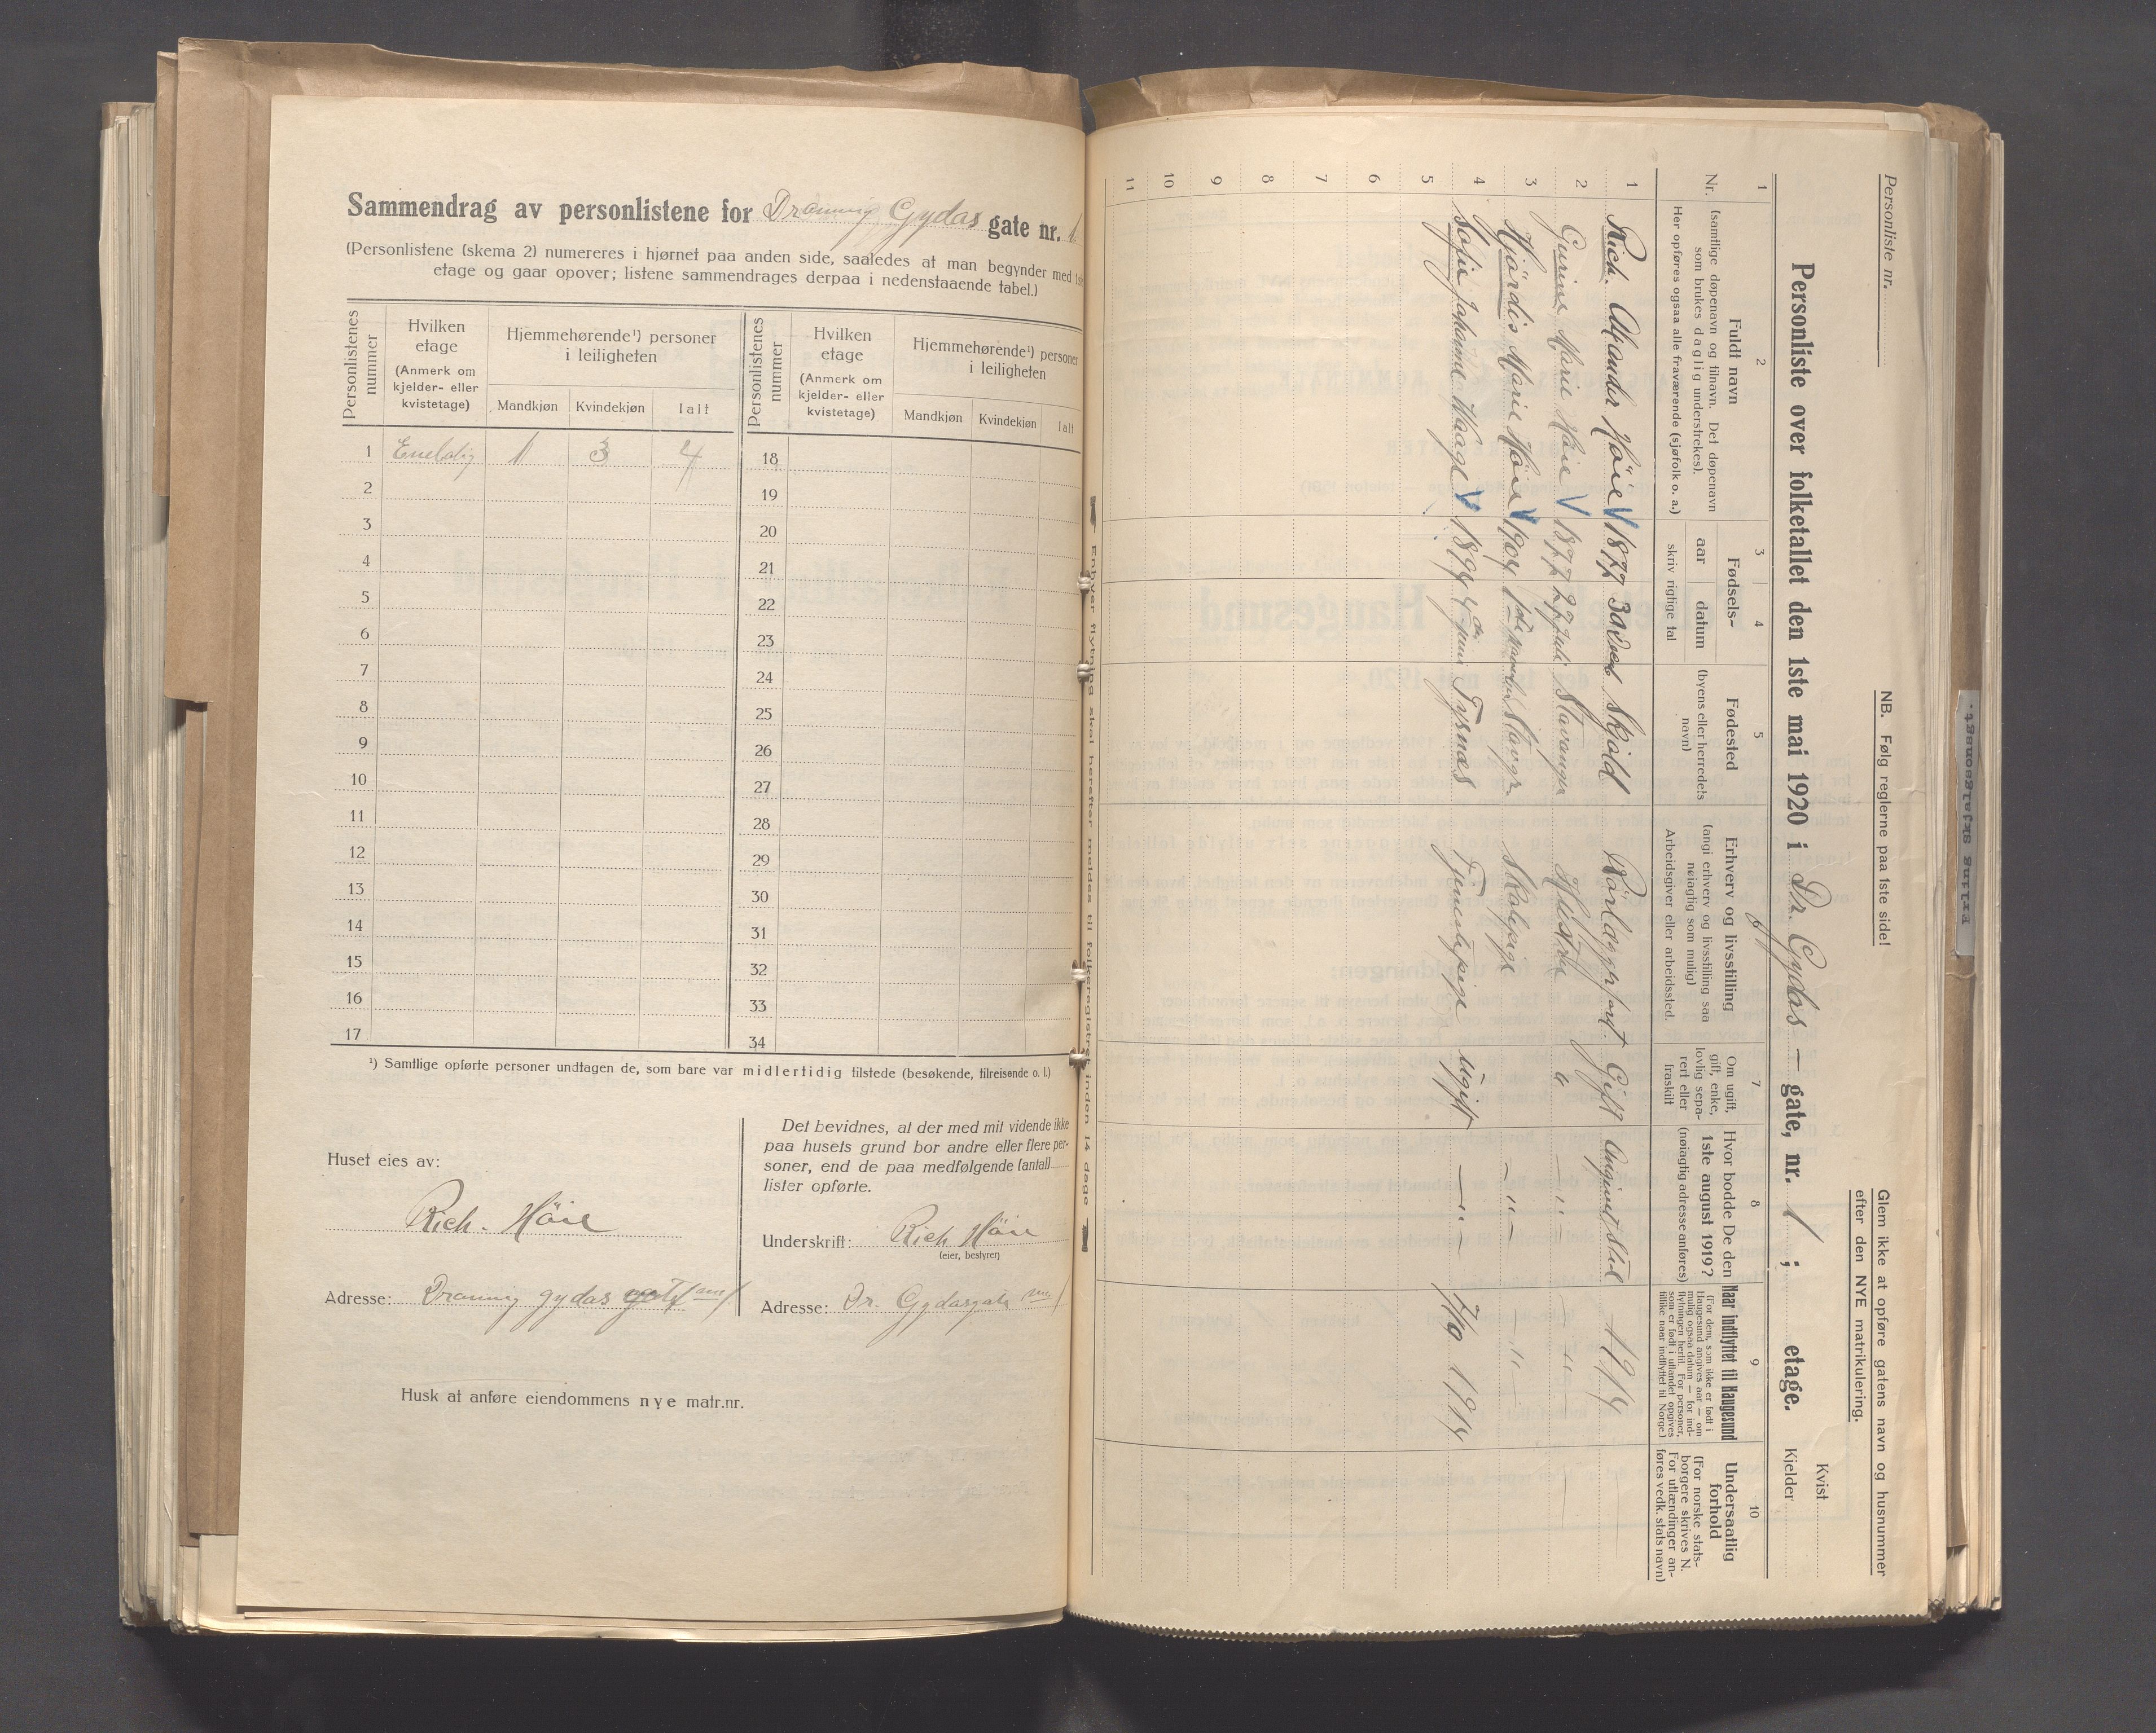 Sammendrag av personlistene for Dronning Gydas gate nr. 1
(Personlistene (skema 2) numereres i hjørnet paa anden side, saaledes at man begynder med
etage og gaar opover; listene sammendrages derpaa i nedenstaaende tabel.)
Personlistenes nummer
Hvilken etage
(Anmerk om kjelder- eller kvistetage)
Hjemmehørende¹) personer i leiligheten
Mandkjøn Kvindekjøn Ialt
Personlistenes nummer
Hvilken etage
(Anmerk om kjelder- eller kvistetage)
Hjemmehørende¹) personer i leiligheten
Mandkjøn Kvindekjøn Ialt
1 Enebolig 1 3 4 18
2 19
3 20
4 21
5 22
6 23
7 24
8 25
9 26
10 27
11 28
12 29
13 30
14 31
15 32
16 33
17 34
¹) Samtlige opførte personer undtagen de, som bare var midlertidig tilstede (besøkende, tilreisende o. l.)
Huset eies av:
Rich. Höie
Adresse: Dronning gydas gate nr 1
Det bevidnes, at der med mit vidende ikke
paa husets grund bor andre eller flere per-
soner, end de paa medfølgende (antal)
lister opførte.
Underskrift: Rich Höie
(eier, bestyrer)
Adresse: Dr. Gydasgate nr 1
Husk at anføre eiendommens nye matr.nr.
Enhver flytning skal herefter meldes til folkeregistret inden 14 dage
Personliste nr.
NB. Følg reglerne paa 1ste side!
Glem ikke at opføre gatens navn og husnummer
efter den NYE matrikulering.
Personliste over folketallet den 1ste mai 1920 i Dr. Gydas — gate, nr. 1 ; etage.
Kvist
Kjelder
1 2 3 4 5 7 8 9 10
Nr.
Fuldt navn
(samtlige døpenavn og tilnavn. Det døpenavn
som brukes daglig understrekes).
Her opføres ogsaa alle fraværende (sjøfolk o. a.)
Fødsels-
aar datum
skriv rigtige tal
Fødested
(byens eller herredets
navn)
Erhverv og livsstilling
(angi erhverv og livsstilling saa
nøiagtig som mulig)
Arbeidsgiver eller arbeidssted.
Om ugift,
gift, enke,
lovlig sepa-
rert eller
fraskilt
Hvor bodde De den
1ste august 1919?
(nøiagtig adresse anføres)
Naar indflyttet til Haugesund
(For dem, som ikke er født i
Haugesund angives aar — om
mulig ogsaa datum — for ind-
flytningen hertil. For personer,
som er født i utlandet opgives
tillike naar indflyttet til Norge.)
Undersaatlig
forhold
(For norske stats-
borgere skrives N.
For utlændinger an-
føres vedk. stats navn)
1 Rich. Höie 1877 Skjold Gift 1914
2 Marie Höie 1877 27 juli Stavanger Hustru — " — — " —
3 Hjördis Marie Höie 1904 Stavgr. Skolepige — " — — " —
4 Sofie Johanne Waage 1894 4de juni Tysnæs Tjenestepige Ugift — " — 7/10 1914
5
6
7
8
9
10
11